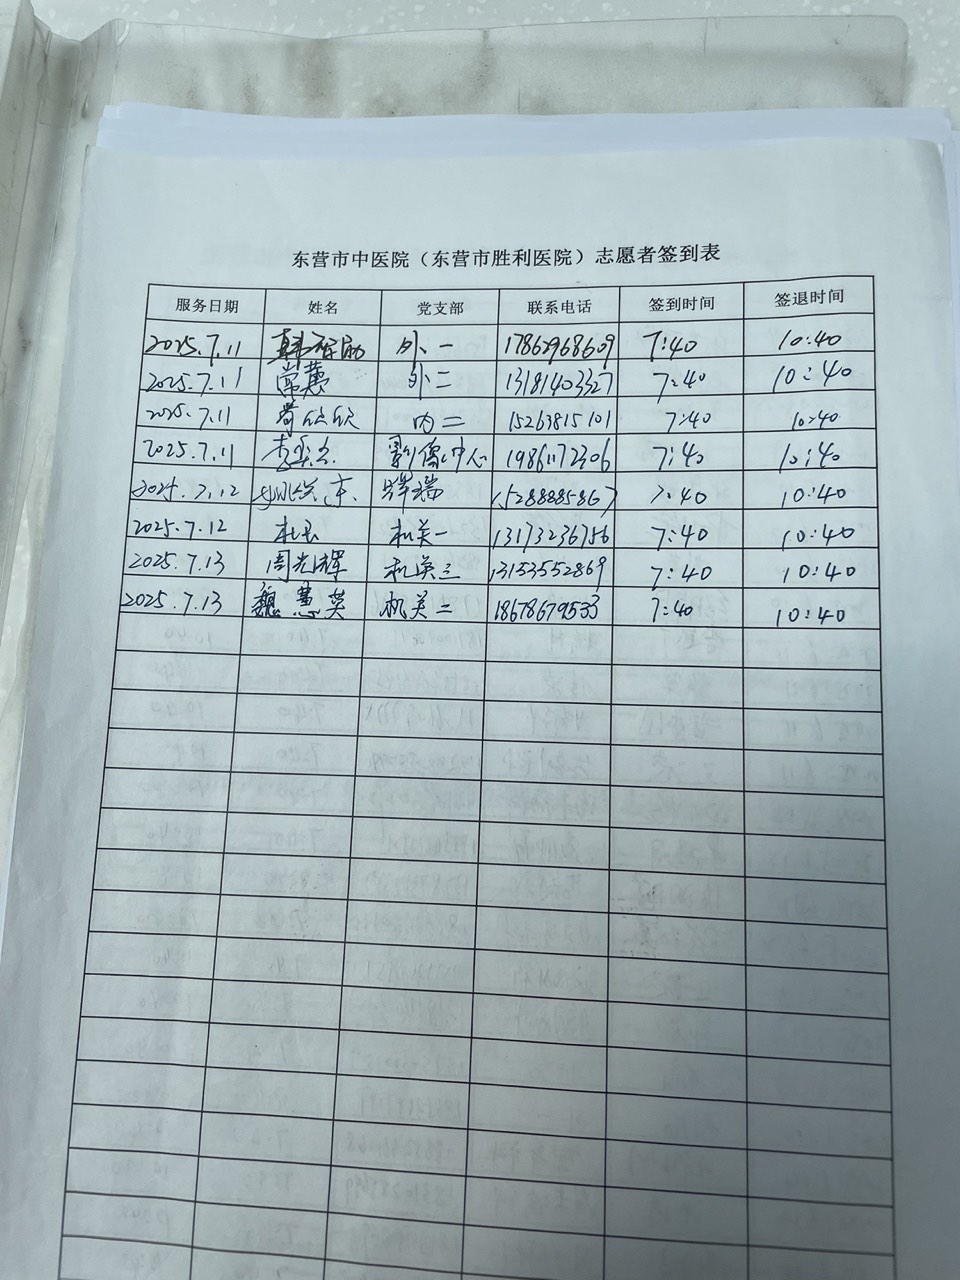 东营市中医院（东营市胜利医院）志愿者签到表
服务日期 姓名 党支部 联系电话 签到时间 签退时间
2025.7.11 外一 17862968609 7:40 10:40
2025.7.11 常慧 外二 13181403327 7:40 10:40
2025.7.11 内二 15263815101 7:40 10:40
2025.7.11 影像中心 19861172306 7:40 10:40
2025.7.12 15288885867 7:40 10:40
2025.7.12 机关一 13173236756 7:40 10:40
2025.7.13 周光辉 机关三 13153552869 7:40 10:40
2025.7.13 魏慧英 机关二 18678679533 7:40 10:40